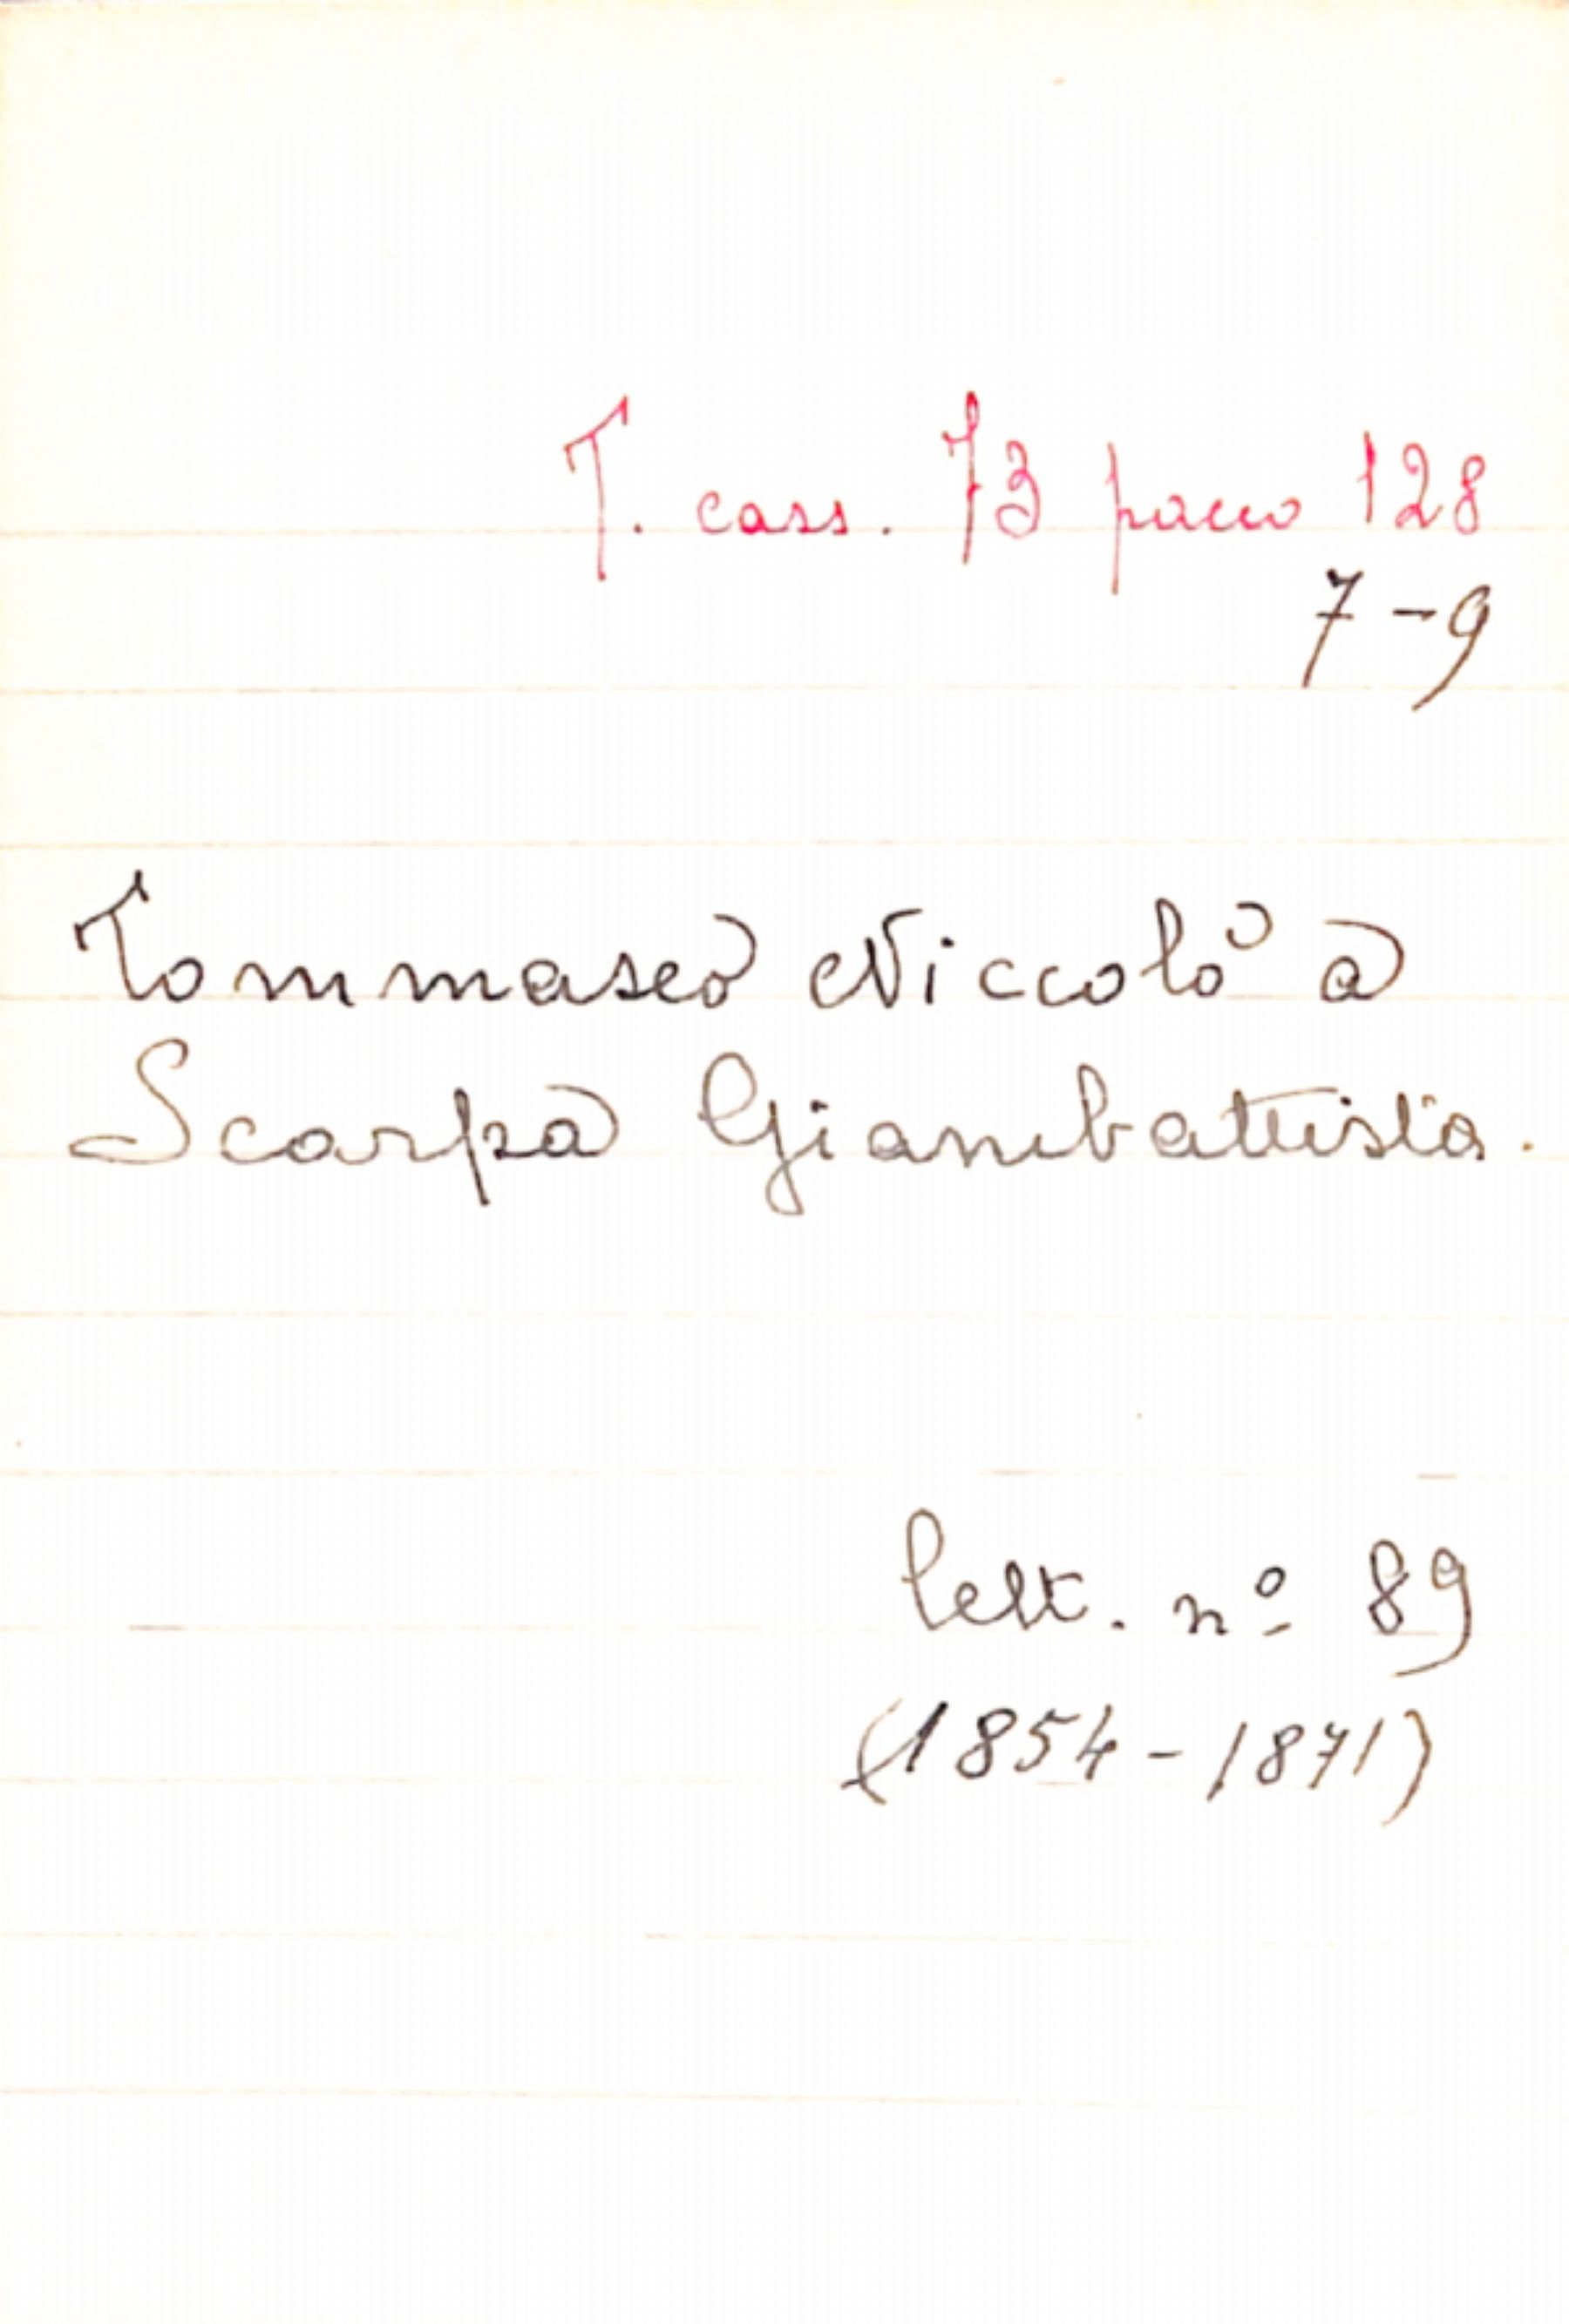 T. cass. 73 pacco 128
7-9
Tommaseo Niccolò a
Scarpa Giambattista.
lett. nº 89
(1854-1871)